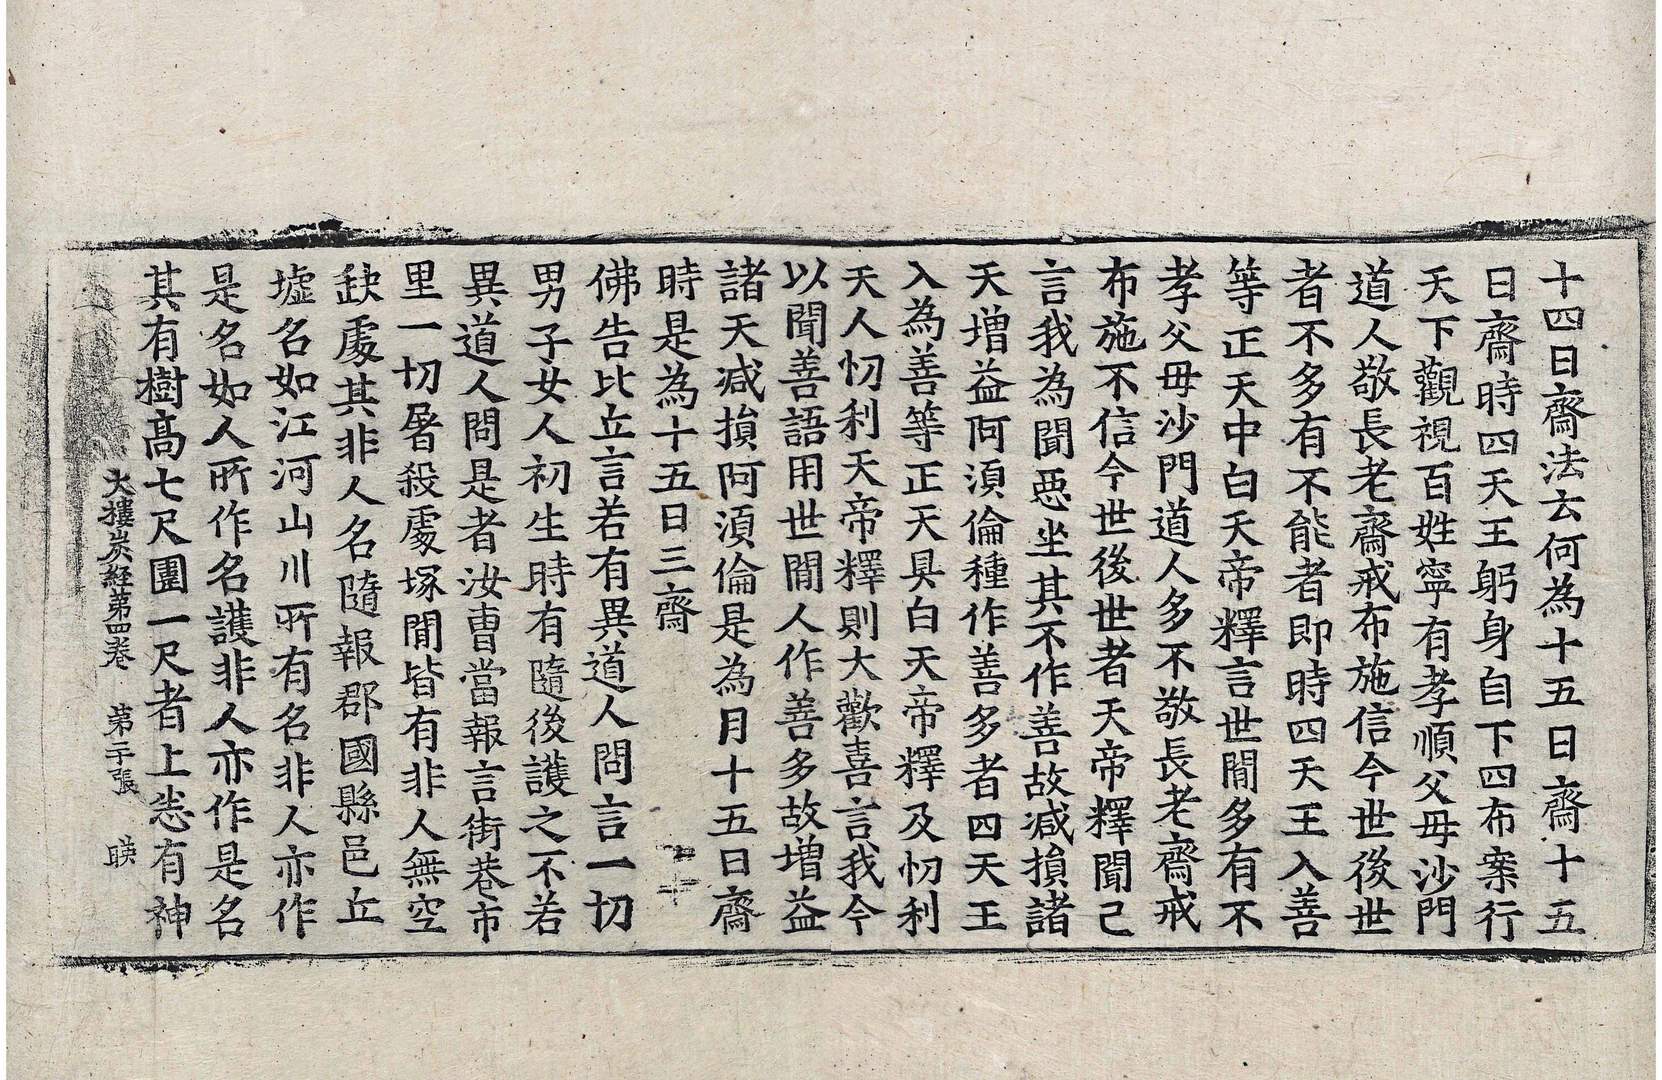 十四日齋法云何為十五日齋十五
日齋時四天王躬身自下四布案行
天下觀視百姓寧有孝順父母沙門
道人敬長老齋戒布施信今世後世
者不多有不能者即時四天王入善
等正天中白天帝釋言世閒多有不
孝父母沙門道人多不敬長老齋戒
布施不信今世後世者天帝釋聞已
言我為聞惡坐其不作善故減損諸
天增益阿湏倫種作善多者四天王
入為善等正天具白天帝釋及忉利
天人忉利天帝釋則大歡喜言我今
以聞善語用世閒人作善多故增益
諸天減損阿湏倫是為月十五日齋
時是為十五日三齋
佛告比丘言若有異道人問言一切
男子女人初生時有隨後護之不若
異道人問是者汝曹當報言街巷市
里一切屠殺處塚閒皆有非人無空
缺處其非人名隨報郡國縣邑丘
墟名如江河山川所有名非人亦作
是名如人所作名護非人亦作是名
其有樹高七尺圍一尺者上悉有神
大摟炭経第四卷 第二十張 暎